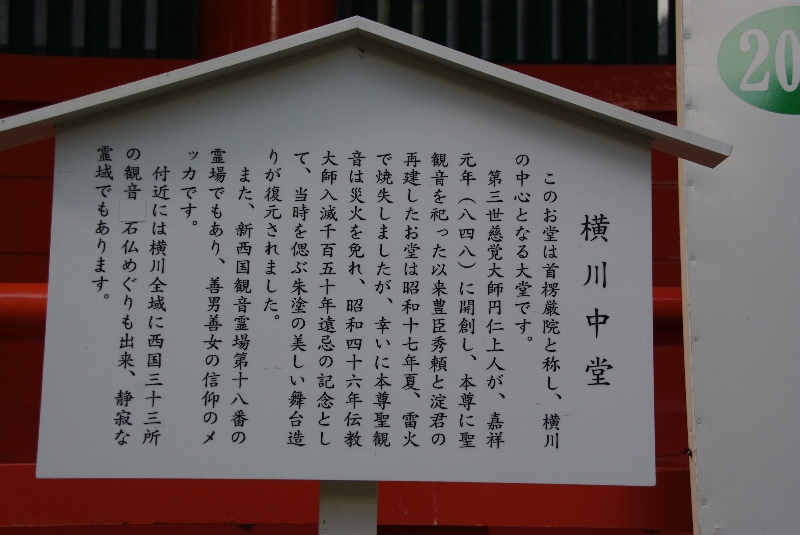 横川中堂
このお堂は首楞厳院と称し、横川
の中心となる大堂です。
第三世慈覚大師円仁上人が、嘉祥
元年（八四八）に開創し、本尊に聖
観音を祀った以来豊臣秀頼と淀君の
再建したお堂は昭和十七年夏、雷火
で焼失しましたが、幸いに本尊聖観
音は災火を免れ、昭和四十六年伝教
大師入滅千百五十年遠忌の記念とし
て、当時を偲ぶ朱塗の美しい舞台造
りが復元されました。
また、新西国観音霊場第十八番の
霊場でもあり、善男善女の信仰のメ
ッカです。
付近には横川全域に西国三十三所
の観音 石仏めぐりも出来、静寂な
霊域でもあります。
20